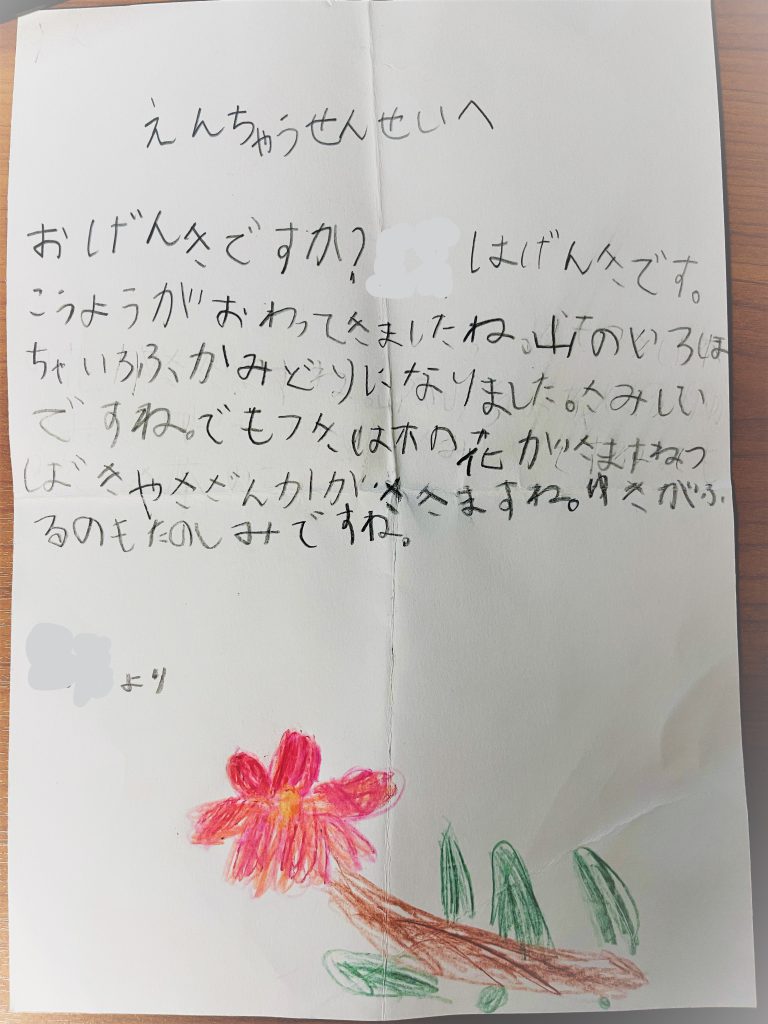 えんちゃうせんせいへ
おげんきですか? はげんきです。
こうようがおわってきましたね。山のいろは
ちゃいろふ、かみどりになりました。さみしい
ですね。でもフきは木の花がさきますねつ
ばきやさざんかがさきますね。ゆきがふ
るのもたのしみですね。
より